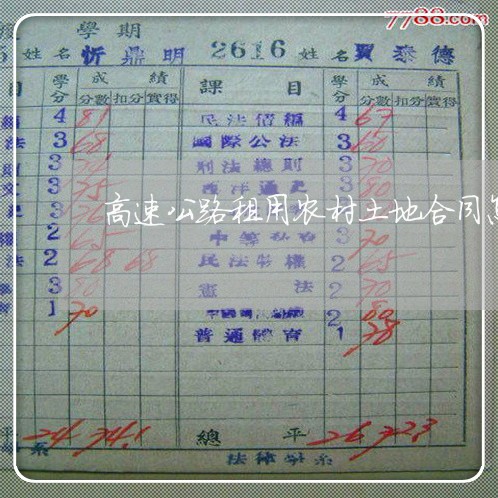 7788.com
學期
5 姓名 忻鼎明 2616 姓名 賈泰德
目 學分 成績 分數 扣分 實得 課目 學分 成績 分數 扣分 實得
4 81 民法債編 4 67
法 3 68 國際公法 3 60
3 刑法總則 3 70
3 75 西洋通史 3 80
高速公路租用农村土地合同怎
2 3 70
法 2 68 68 民法物權 2 65
3 80 憲法 2 70
1 70 2 80
普通體育 1 78
平 24 74.1 總平 26 72.3
系 法律學系